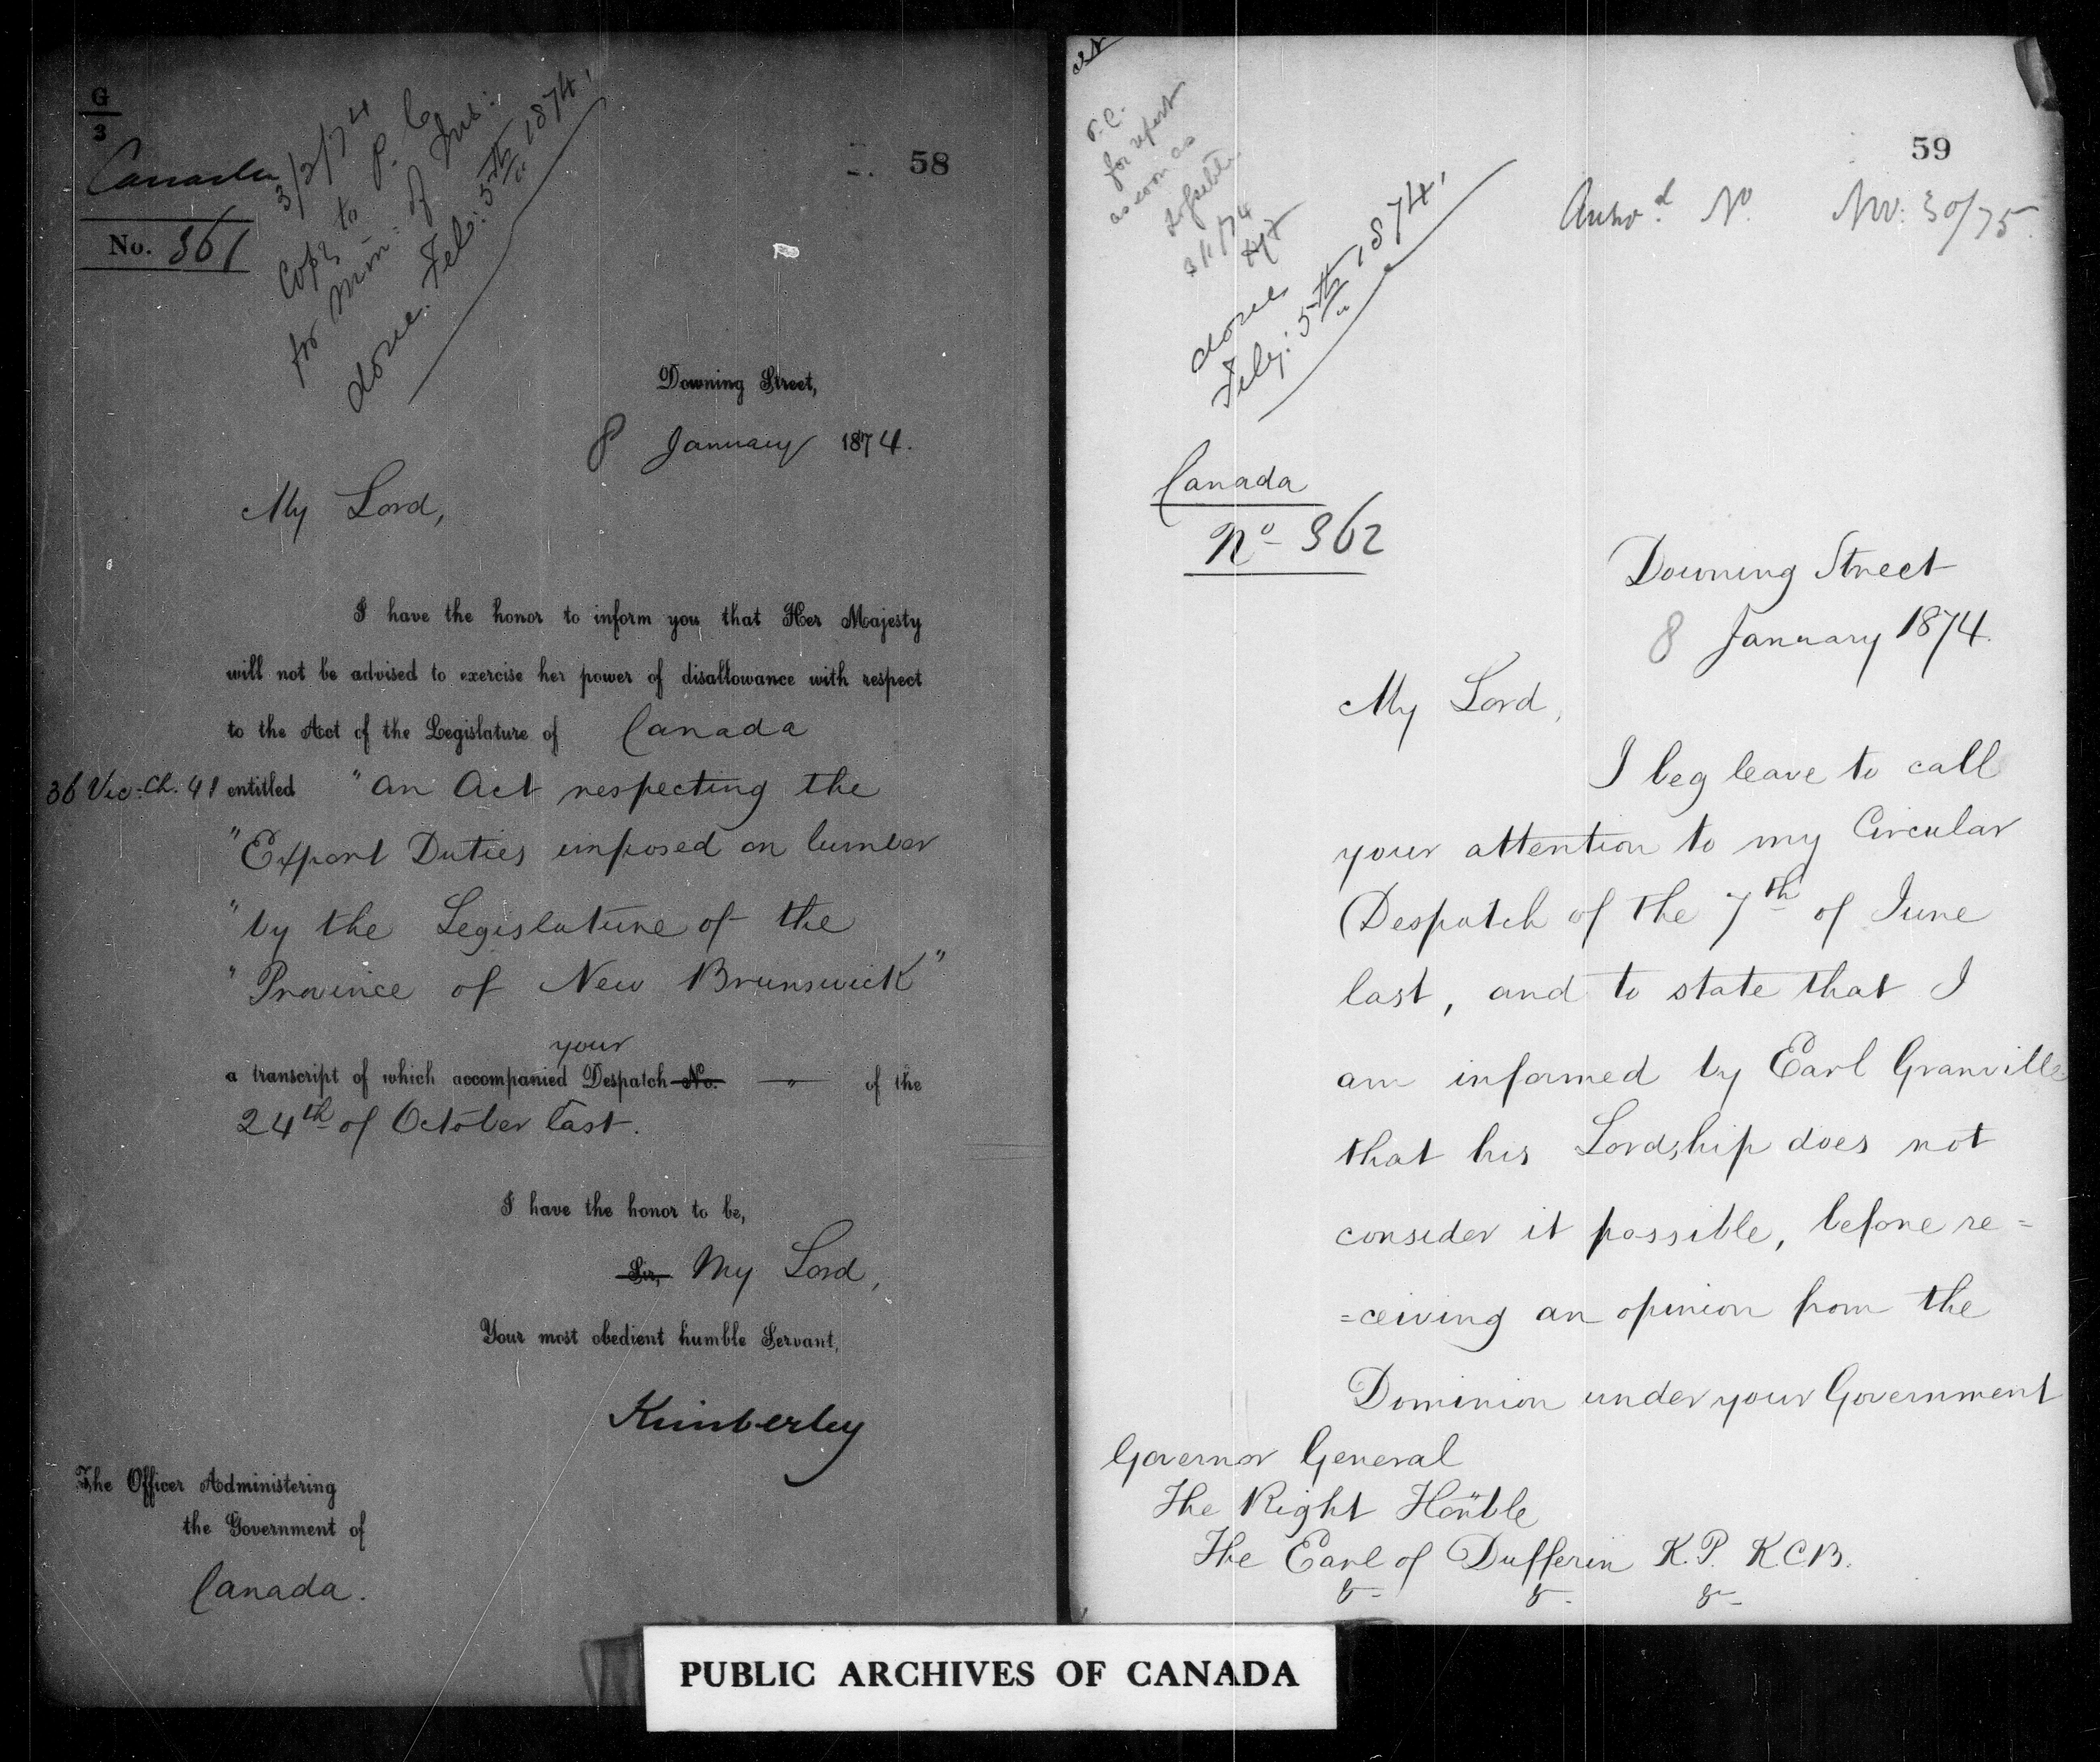 G
3
Canada
No. 361
3/2/74
Copy to P. C.
for Min: of Jus:
done. Feb: 5th 1874.
58
Downing Street,
8 January 1874.
My Lord,
I have the honor to inform you that Her Majesty
will not be advised to exercise her power of disallowance with respect
to the Act of the Legislature of Canada
36 Vic: Ch. 41 entitled "An Act respecting the
"Export Duties imposed on lumber
"by the Legislature of the
"Province of New Brunswick"
your
a transcript of which accompanied Despatch No. — " — of the
24th of October last.
I have the honor to be,
Sir, My Lord,
Your most obedient humble Servant,
Kimberley
The Officer Administering
the Government of
Canada.
P.C.
for report
as soon as
done
Feby: 5th 1874.
59
Answd. No. Nov: 30/75.
Canada
No 362
Downing Street
8 January 1874.
My Lord,
I beg leave to call
your attention to my Circular
Despatch of the 7th of June
last, and to state that I
am informed by Earl Granville
that his Lordship does not
consider it possible, before re=
=ceiving an opinion from the
Dominion under your Government
Governor General
The Right Honble
The Earl of Dufferin K.P. KCB.
& & &
PUBLIC ARCHIVES OF CANADA